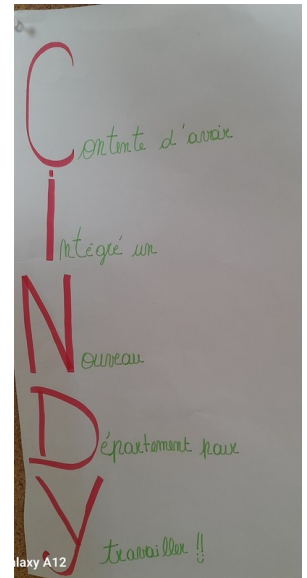 Contente d'avoir
intégré un
Nouveau
Département pour
y travailler !!
laxy A12